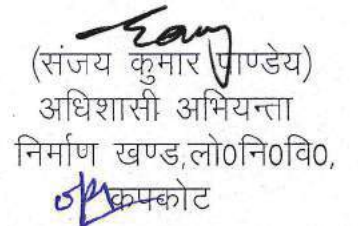 (संजय कुमार पाण्डेय)
अधिशासी अभियन्ता
निर्माण खण्ड,लो0नि0वि0,
कपकोट